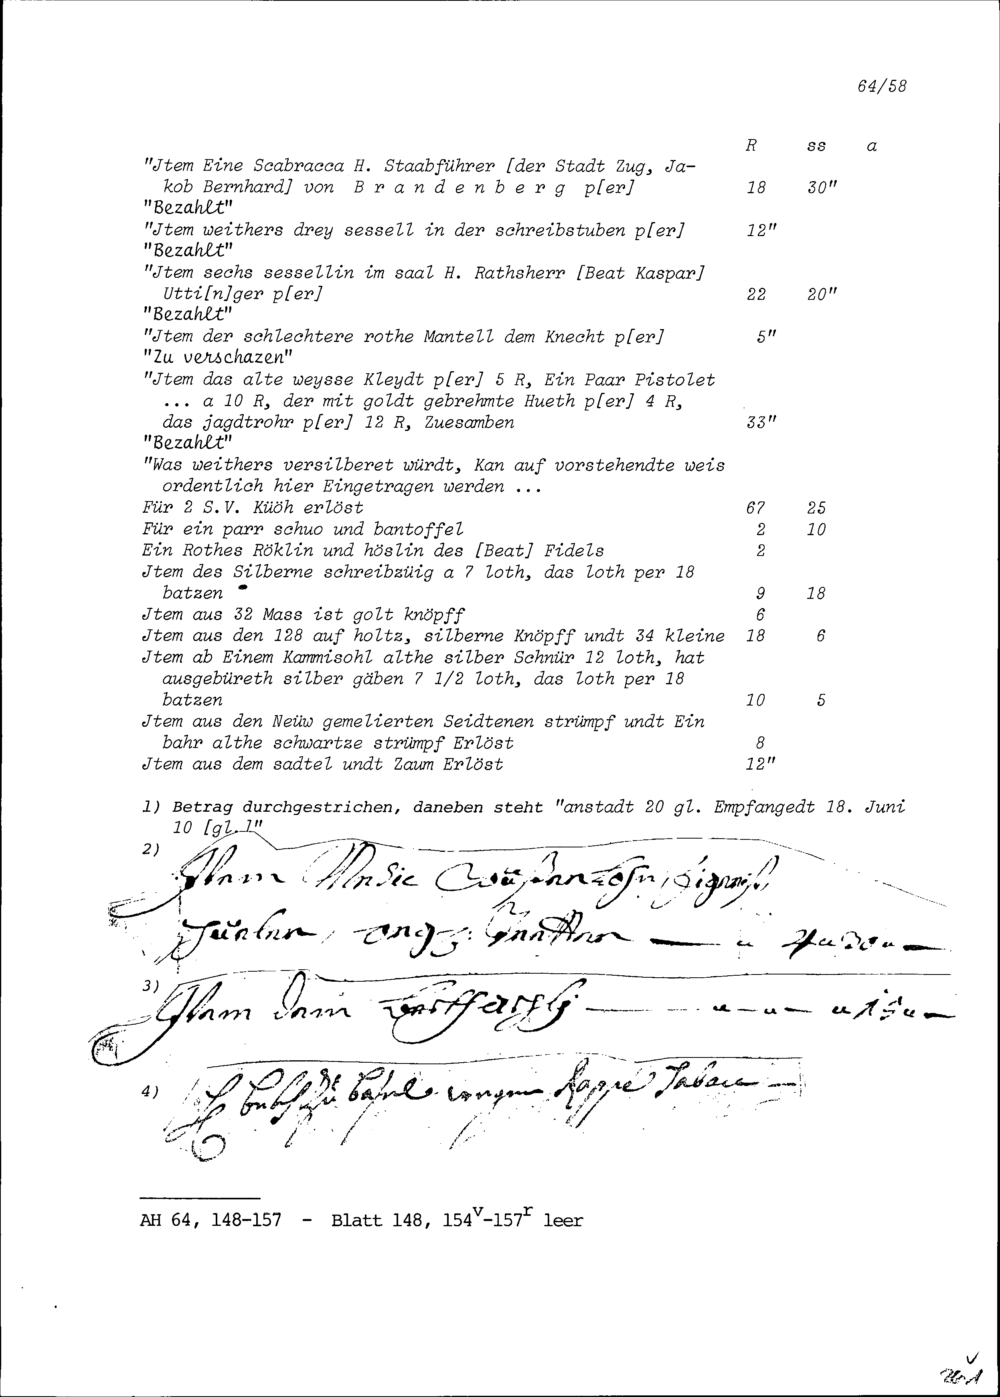 64/58
R ss a
"Jtem Eine Scabracca H. Staabführer [der Stadt Zug, Ja-
kob Bernhard] von B r a n d e n b e r g p[er] 18 30"
"Bezahlt"
"Jtem weithers drey sessell in der schreibstuben p[er] 12"
"Bezahlt"
"Jtem sechs sessellin im saal H. Rathsherr [Beat Kaspar]
Utti[n]ger p[er] 22 20"
"Bezahlt"
"Jtem der schlechtere rothe Mantell dem Knecht p[er] 5"
"Zu verschazen"
"Jtem das alte weysse Kleydt p[er] 5 R, Ein Paar Pistolet
... a 10 R, der mit goldt gebrehmte Hueth p[er] 4 R,
das jagdtrohr p[er] 12 R, Zuesamben 33"
"Bezahlt"
"Was weithers versilberet würdt, Kan auf vorstehendte weis
ordentlich hier Eingetragen werden ...
Für 2 S.V. Küöh erlöst 67 25
Für ein parr schuo und bantoffel 2 10
Ein Rothes Röklin und höslin des [Beat] Fidels 2
Jtem des Silberne schreibzüig a 7 loth, das loth per 18
batzen 9 18
Jtem aus 32 Mass ist golt knöpff 6
Jtem aus den 128 auf holtz, silberne Knöpff undt 34 kleine 18 6
Jtem ab Einem Kammisohl althe silber Schnür 12 loth, hat
ausgebüreth silber gäben 7 1/2 loth, das loth per 18
batzen 10 5
Jtem aus den Neüw gemelierten Seidtenen strümpf undt Ein
bahr althe schwartze strümpf Erlöst 8
Jtem aus dem sadtel undt Zaum Erlöst 12"
1) Betrag durchgestrichen, daneben steht "anstadt 20 gl. Empfangedt 18. Juni
10 [gl.]"
2)
3)
4)
AH 64, 148-157 - Blatt 148, 154v-157r leer